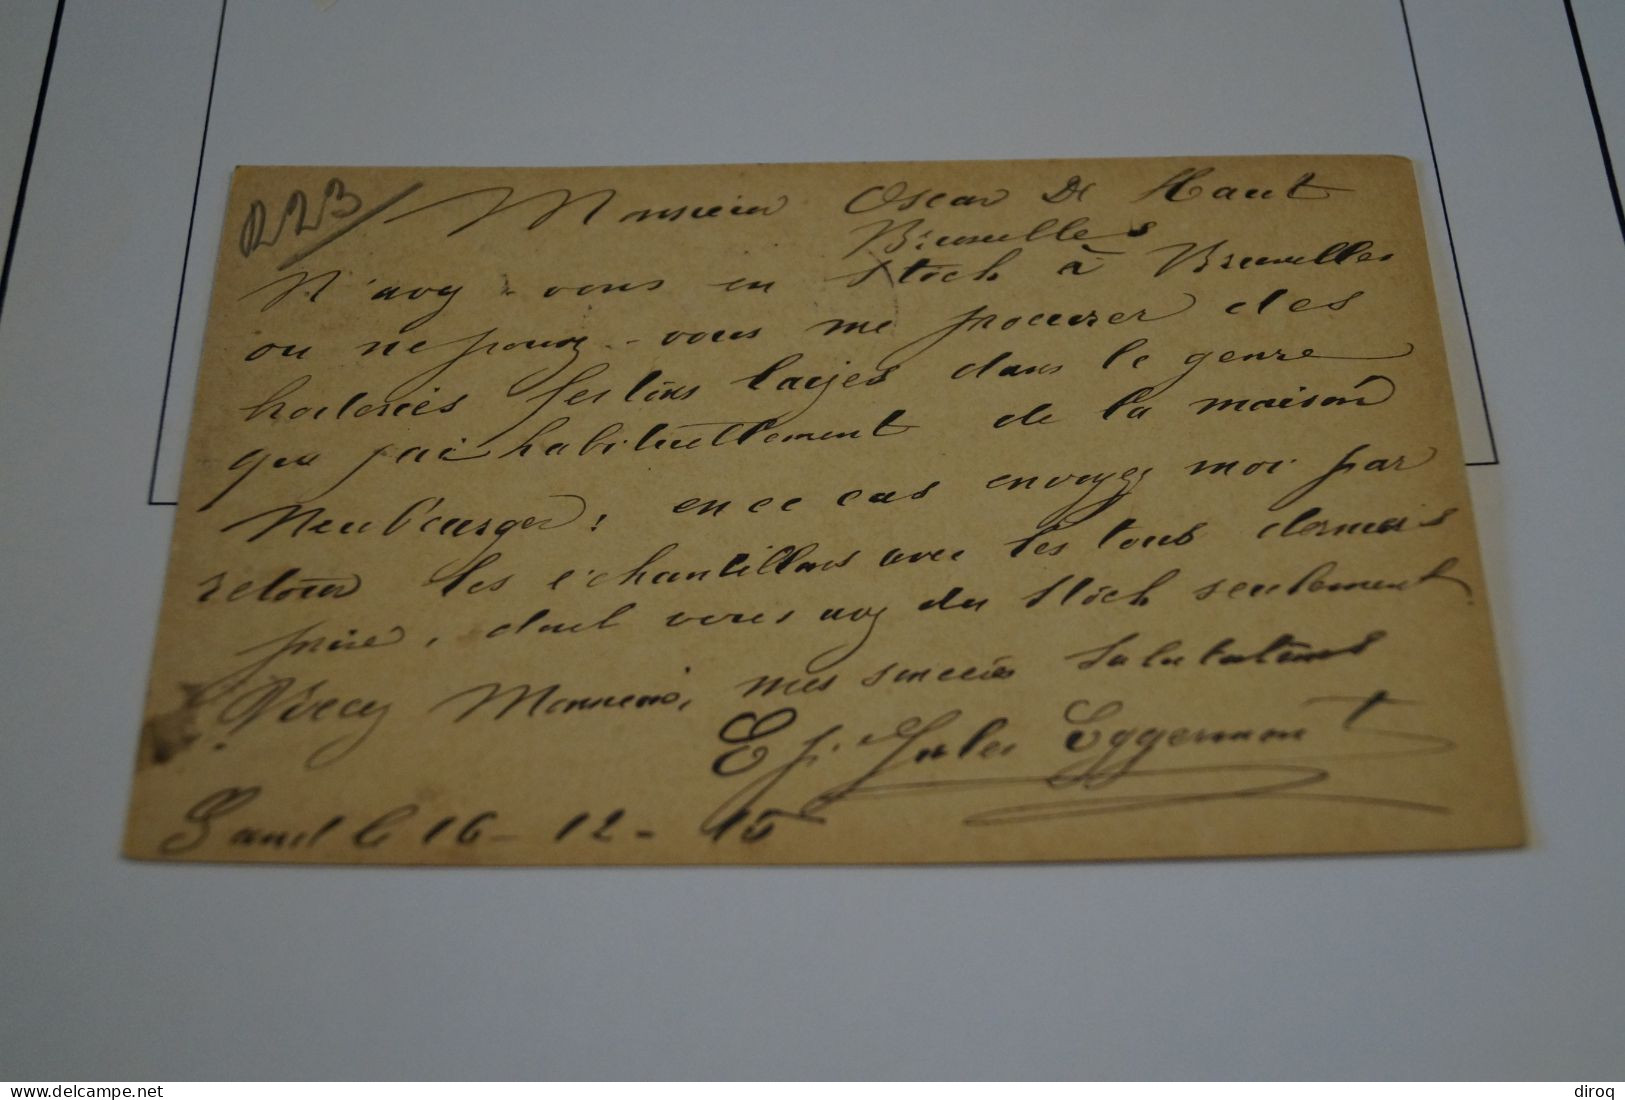 223/
Monsieur Oscar De Haut
Bruxelles
N'avez-vous en Stock à Bruxelles
ou ne pouvez-vous me procurer des
broderies festons larges dans le genre
que j'ai habituellement de la maison
Neuburger, en ce cas envoyez moi par
retour les échantillons avec les tous derniers
prix, dont vous avez du Stock seulement
Monsieur, mes sincères salutations
Jules Eggermont
Gand le 16-12-15
www.delcampe.net
diroq